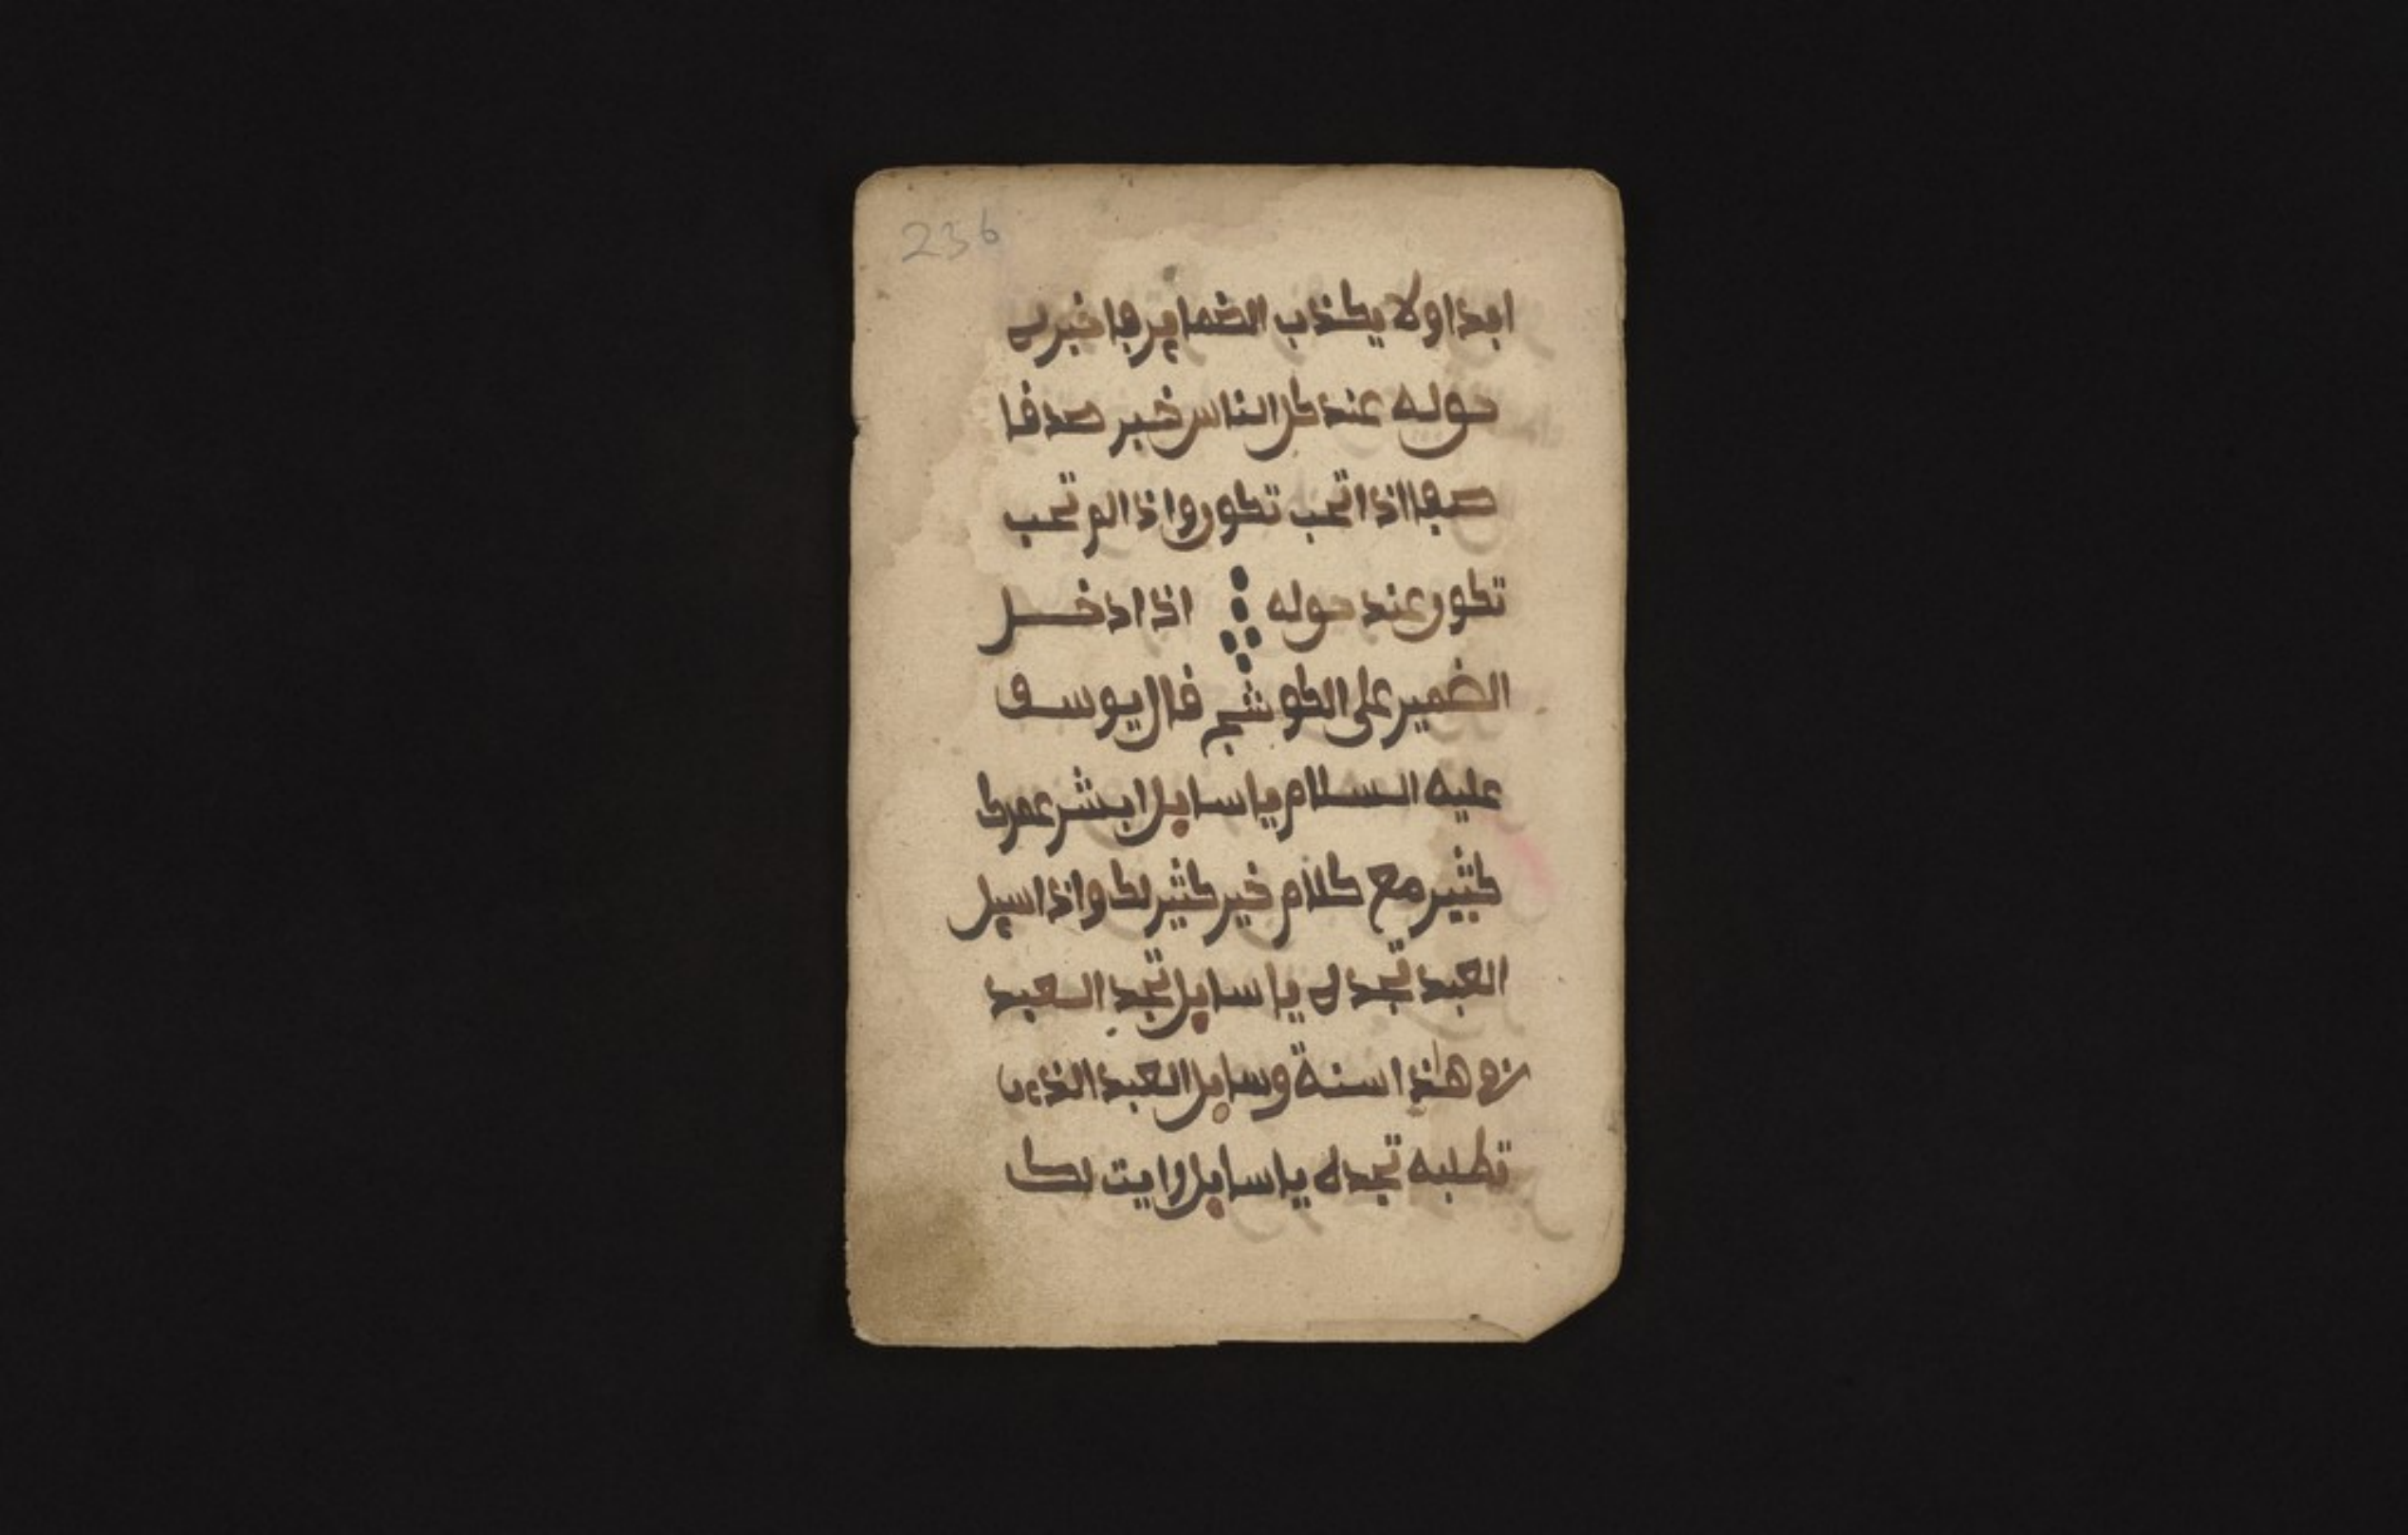 236
ابدا ولا يكذب الضماير فاخبرے
حوله عند كل الناس خبر صدقا
صفا اذا تحب تكور واذا لم تحب
تكور عند حوله اذا دخل
الضمير على الكوشم قال يوسف
عليه السلام يا سايل ابشر عمرك
كثير مع كلام خير كثير لك واذا سيل
العبد تجدله يا سايل تجد العبد
هذا سنة وسايل العبد الذى
تطلبه تجده يا سايل رايت لك